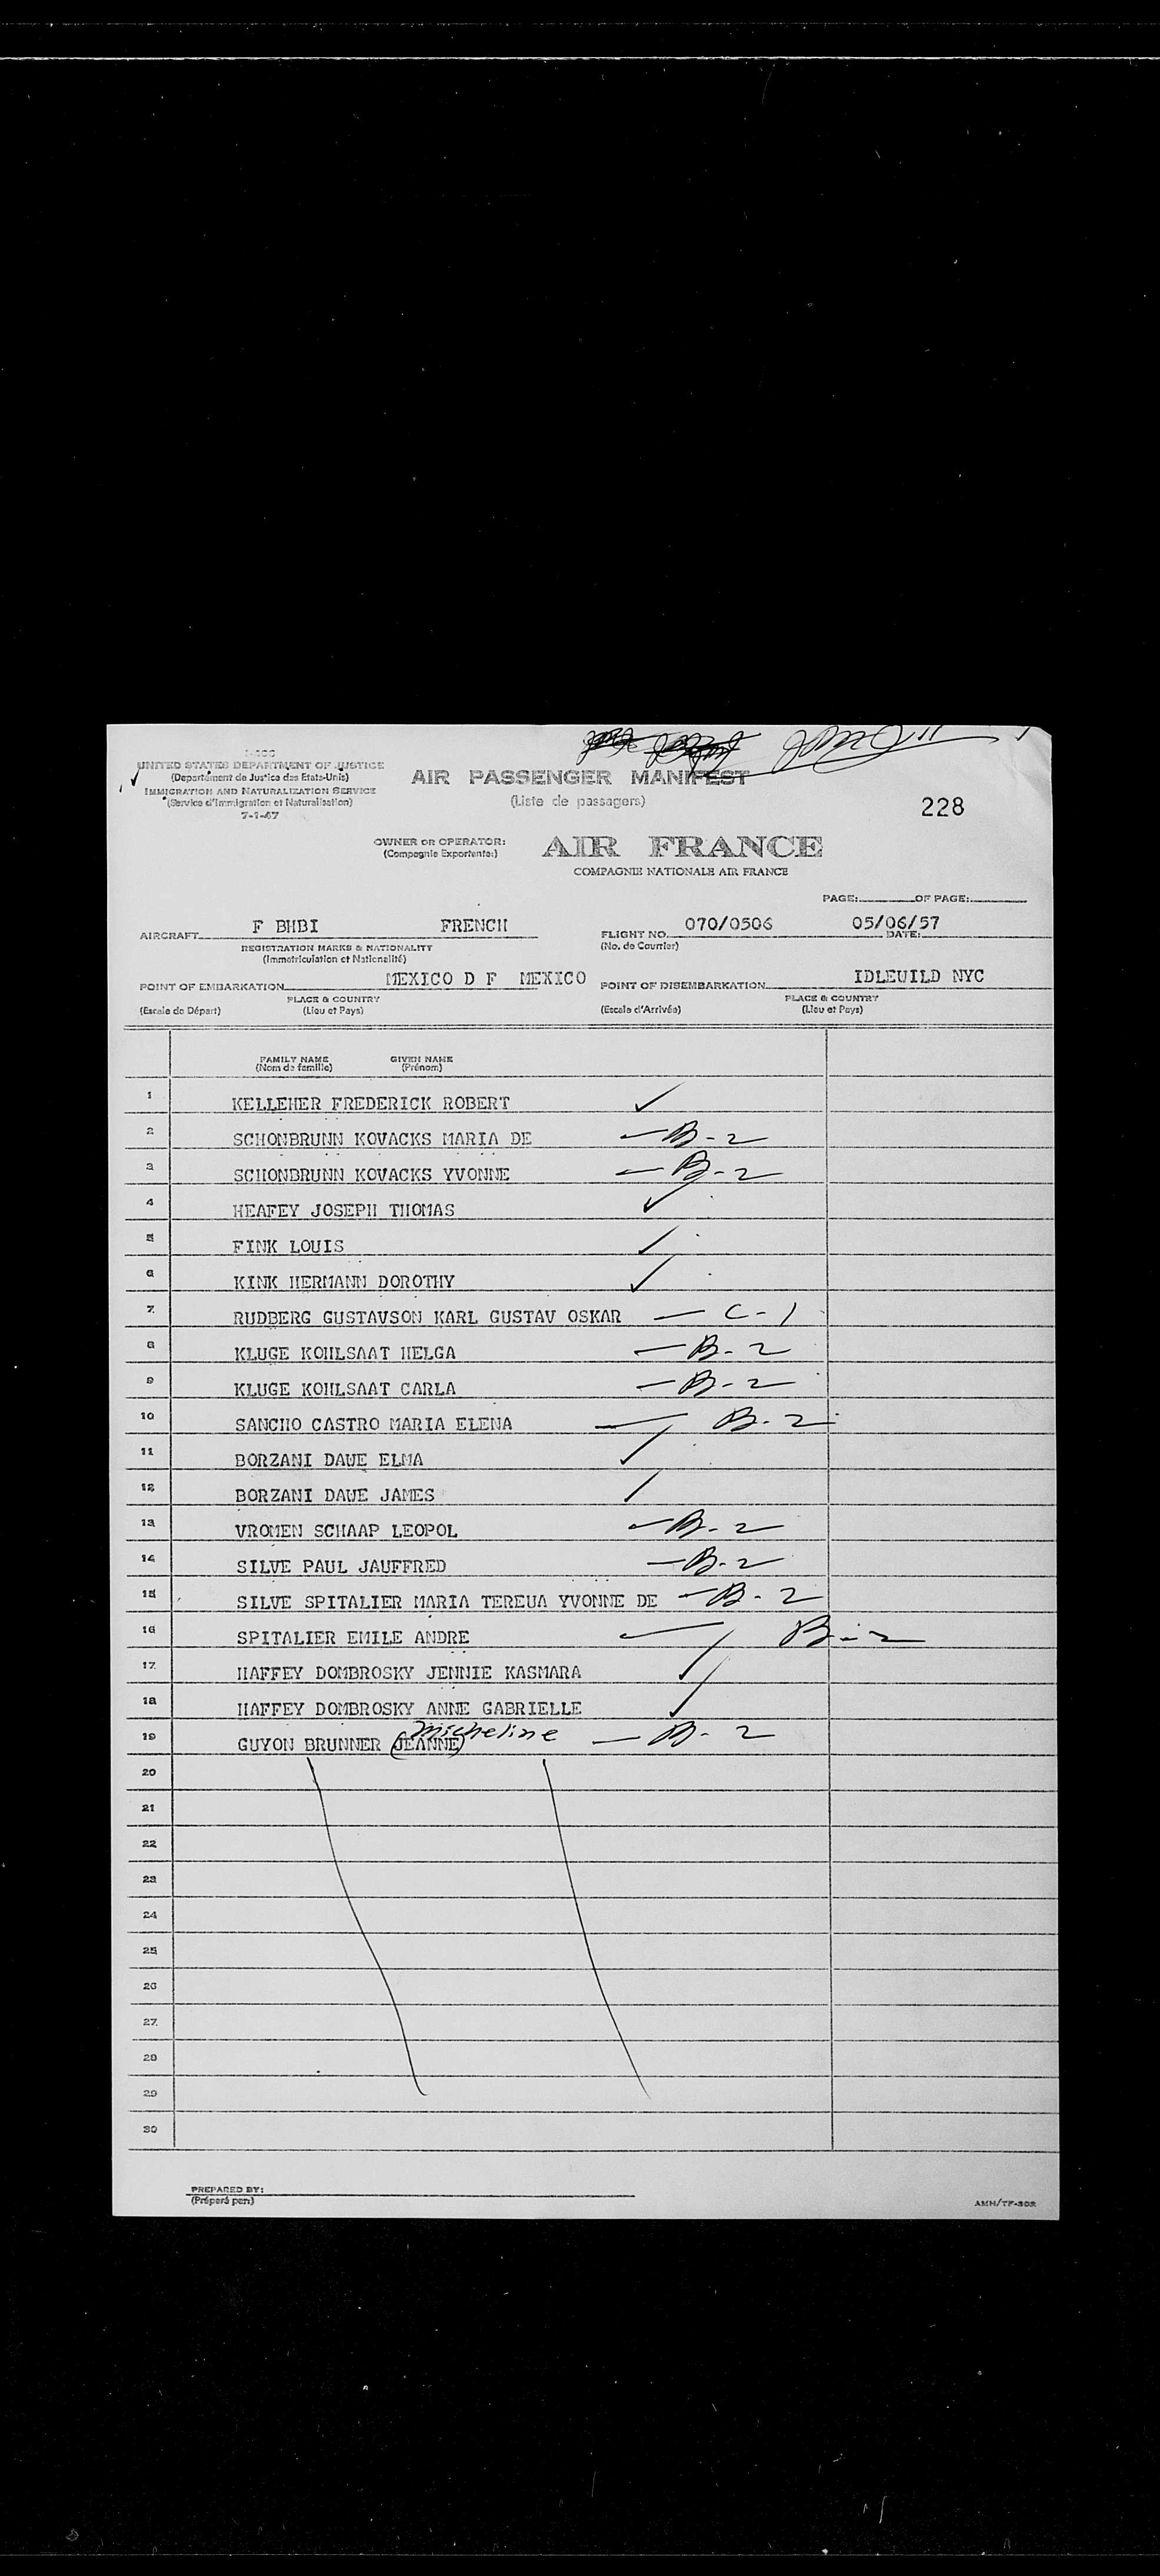 I-466
UNITED STATES DEPARTMENT OF JUSTICE
(Départment de Justice des Etats-Unis)
IMMIGRATION AND NATURALIZATION SERVICE
(Service d'Immigration et Naturalisation)
7-1-47
AIR PASSENGER MANIFEST
(Liste de passagers)
228
OWNER OR OPERATOR:
(Compagnie Exportente:)
AIR FRANCE
COMPAGNIE NATIONALE AIR FRANCE
PAGE: OF PAGE:
AIRCRAFT F BHBI FRENCH FLIGHT NO. 070/0506 05/06/57 DATE:
REGISTRATION MARKS & NATIONALITY (No. de Courrier)
(Immatriculation et Nationalité)
POINT OF EMBARKATION MEXICO D F MEXICO POINT OF DISEMBARKATION IDLEWILD NYC
PLACE & COUNTRY PLACE & COUNTRY
(Escale de Départ) (Lieu et Pays) (Escale d'Arrivée) (Lieu et Pays)
FAMILY NAME GIVEN NAME
(Nom de famille) (Prénom)
1 KELLEHER FREDERICK ROBERT ✓
2 SCHONBRUNN KOVACKS MARIA DE — B-2
3 SCHONBRUNN KOVACKS YVONNE — B-2
4 HEAFEY JOSEPH THOMAS ✓
5 FINK LOUIS ✓
6 KINK HERMANN DOROTHY ✓
7 RUDBERG GUSTAVSON KARL GUSTAV OSKAR — C-1
8 KLUGE KOHLSAAT HELGA — B-2
9 KLUGE KOHLSAAT CARLA — B-2
10 SANCHO CASTRO MARIA ELENA — B-2
11 BORZANI DAWE ELMA ✓
12 BORZANI DAWE JAMES /
13 VROMEN SCHAAP LEOPOL — B-2
14 SILVE PAUL JAUFFRED — B-2
15 SILVE SPITALIER MARIA TEREUA YVONNE DE — B-2
16 SPITALIER EMILE ANDRE — B-2
17 HAFFEY DOMBROSKY JENNIE KASMARA ✓
18 HAFFEY DOMBROSKY ANNE GABRIELLE ✓
19 GUYON BRUNNER (JEANNE) Micheline — B-2
20
21
22
23
24
25
26
27
28
29
30
PREPARED BY:
(Préparé par:)
AMH/TF-302